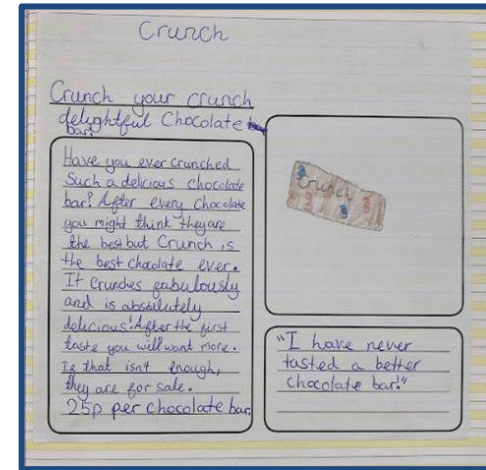 Crunch
Crunch your crunch
delightful Chocolate
bar!
Have you ever crunched
Such a delicious chocolate
bar? After every chocolate
you might think they are
the best but Crunch is
the best chocolate ever.
It Crunches fabulously
and is absolutely
delicious! After the first
taste you will want more.
If that isn't enough,
they are for sale.
25p per chocolate bar.
Crunch
"I have never
tasted a better
chocolate bar!"